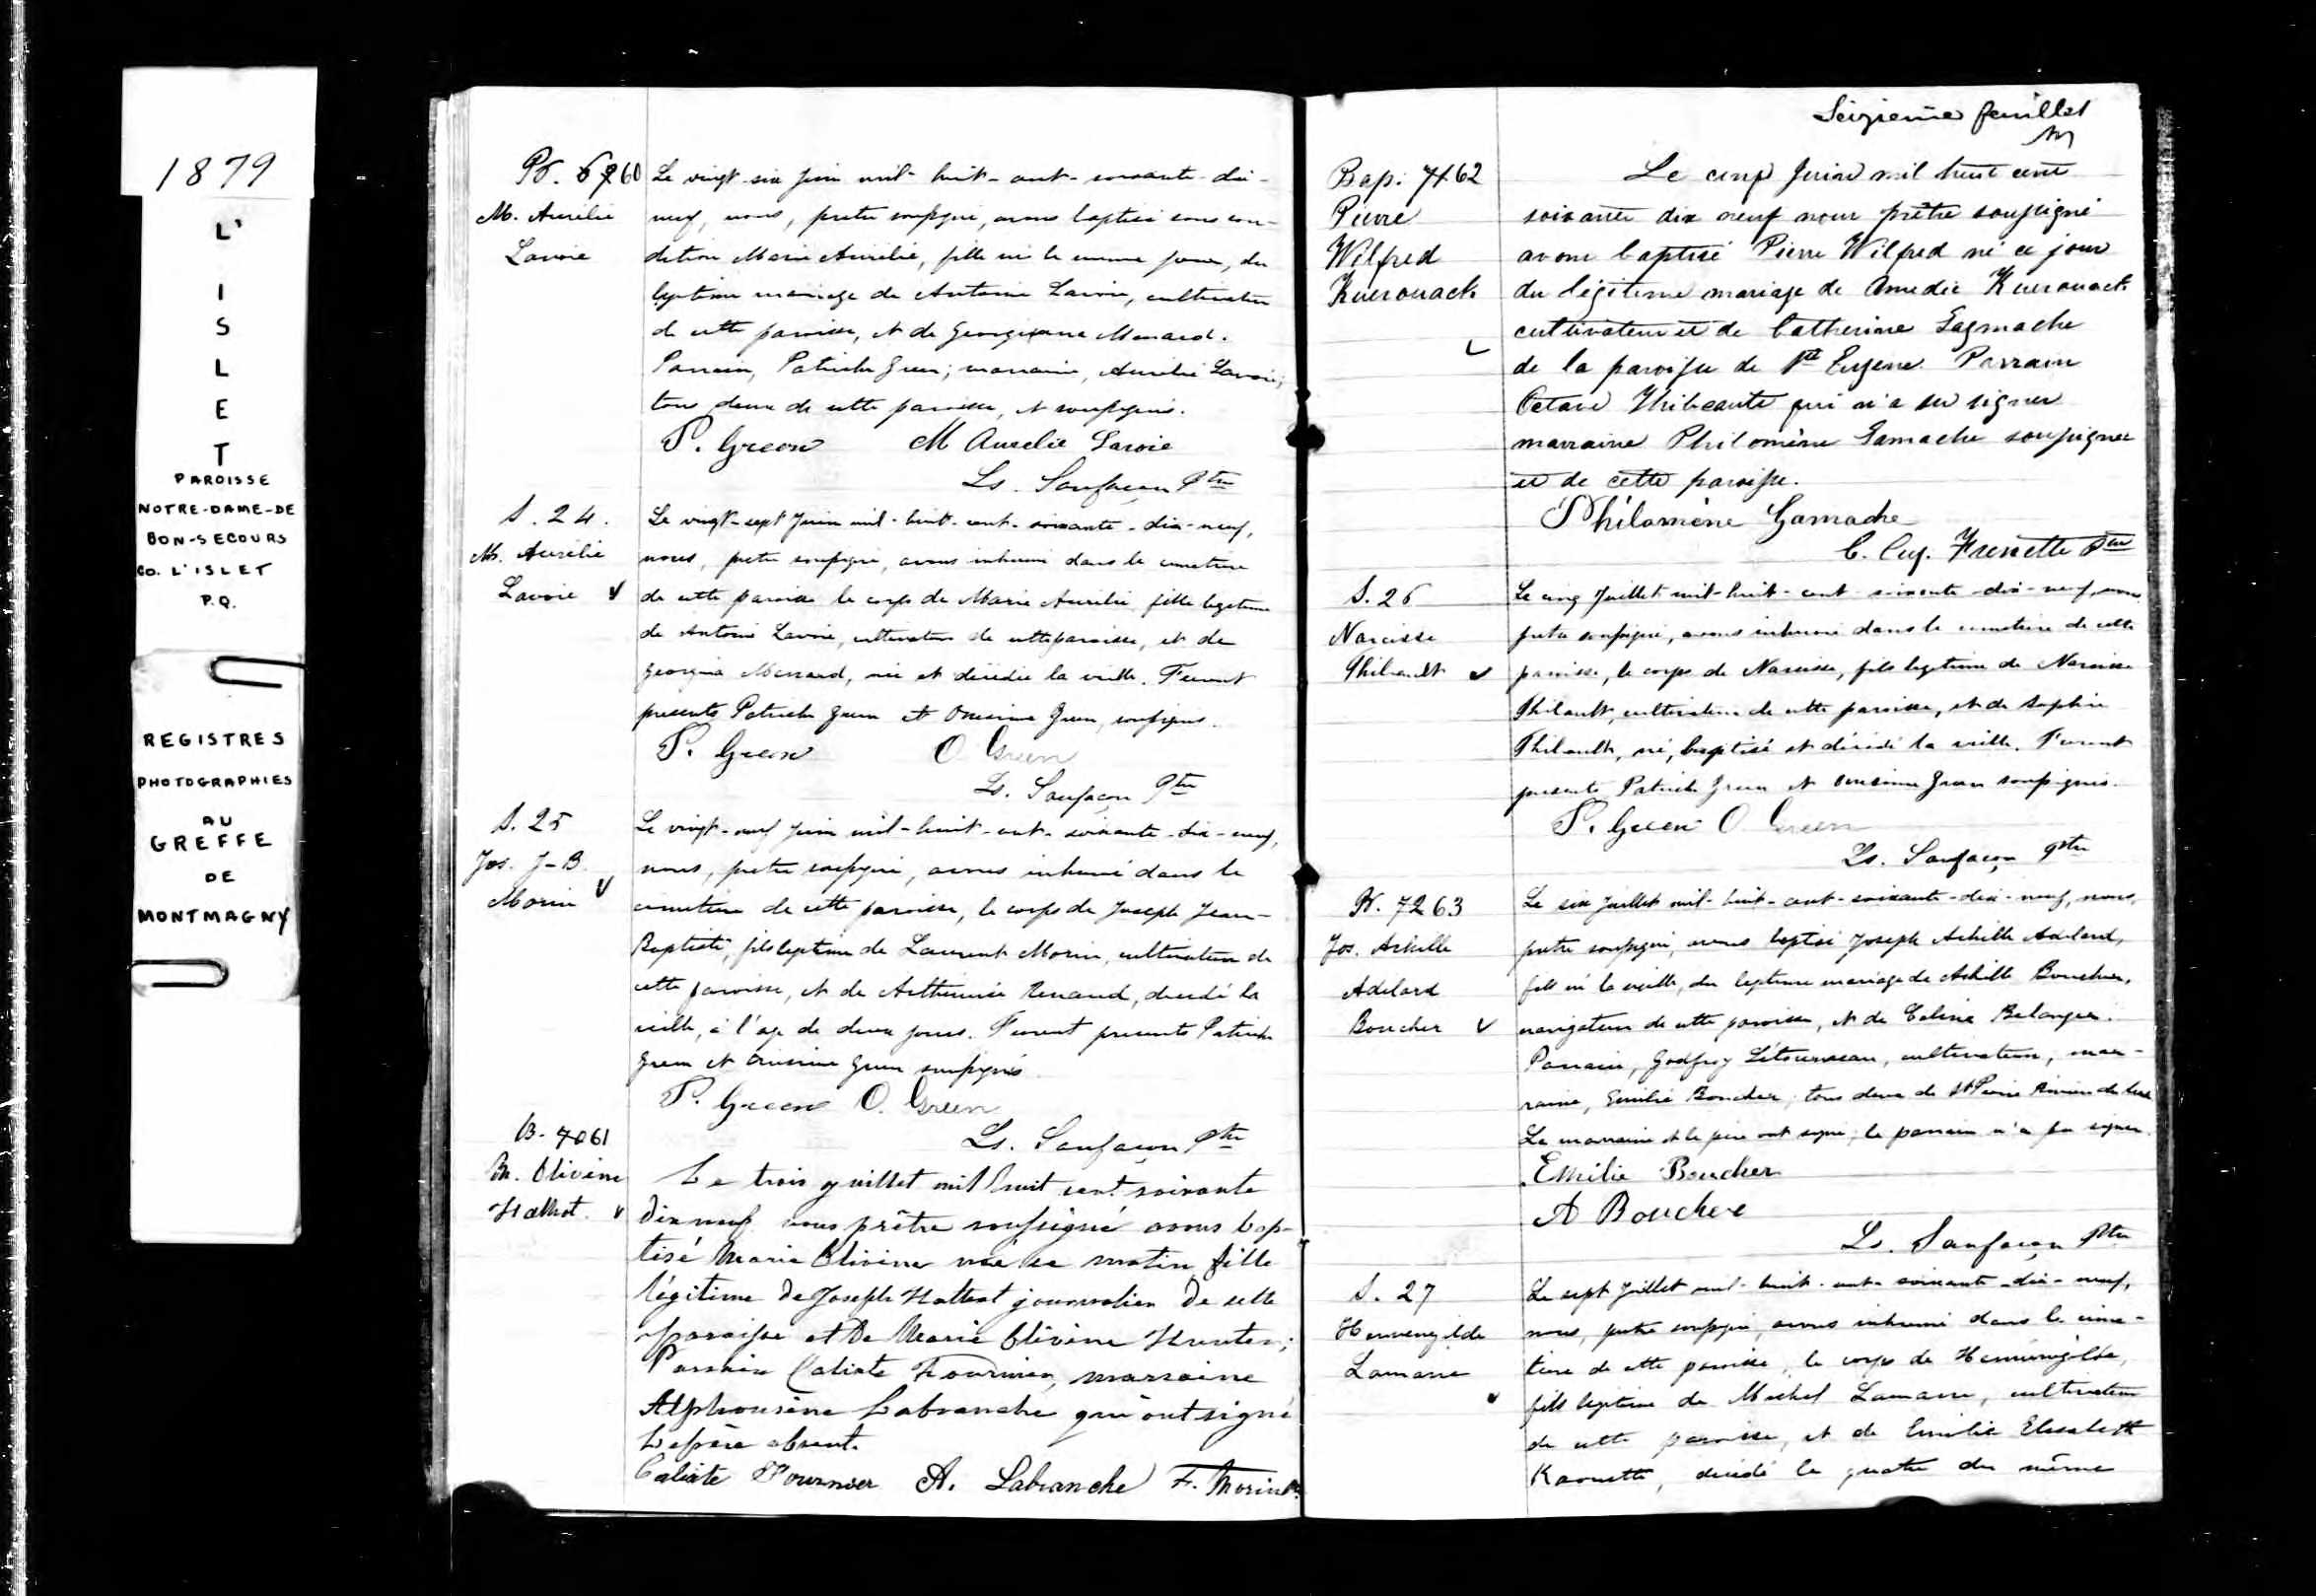 1879
L'
I
S
L
E
T
PAROISSE
NOTRE-DAME-DE
BON-SECOURS
CO. L'ISLET
P.Q.
REGISTRES
PHOTOGRAPHIES
AU
GREFFE
DE
MONTMAGNY
60
M. Aurelie
Lavoie
Le vingt-six Juin mil-huit-cent-soixante-dix-
neuf, nous, prêtre soussigné, avons baptisé sous con-
dition Marie Aurelie, fille née le même jour, du
légitime mariage de Antoine Lavoie, cultivateur
de cette paroisse, et de Georgianna Menard.
Parrain, Patrick Green; marraine, Aurelie Lavoie;
tous deux de cette paroisse, et soussignés.
P. Green M Aurelie Lavoie
Ls. Sanfaçon Ptre
S. 24.
M. Aurélie
Lavoie
Le vingt-sept Juin mil-huit-cent-soixante-dix-neuf,
nous, prêtre soussigné, avons inhumé dans le cimetière
de cette paroisse le corps de Marie Aurelie fille légitime
de Antoine Lavoie, cultivateur de cette paroisse, et de
Georgina Menard, née et décédée la veille. Furent
presents Patrick Green et Onesime Green, soussignés.
P. Green O Green
Ls. Sanfaçon Ptre
S. 25
Jos. J-B.
Morin
Le vingt-neuf Juin mil-huit-cent-soixante-dix-neuf,
nous, prêtre soussigné, avons inhumé dans le
cimetière de cette paroisse, le corps de Joseph Jean-
Baptiste, fils légitime de Laurent Morin, cultivateur de
cette paroisse, et de Arthémise Renaud, décédé la
veille, à l'age de deux jours. Furent presents Patrick
Green et Onesime Green soussignés
P. Green O. Green
Ls. Sanfaçon Ptre
B. 61
M. Olivine
Le trois juillet mil huit cent soixante
dix neuf nous prêtre soussigné avons bap-
tisé Marie Olivine née ce matin fille
légitime de Joseph journalier de cette
paroisse et de Marie Olivine
Parrain Calixte Fournier, marraine
Alphonsine Labranche qui ont signé
Le père absent.
Calixte Fournier A. Labranche F. Morin
Seizieme feuillet
Bap. 62
Pierre
Wilfred
Kuerouack
Le cinq Juin mil huit cent
soixante dix neuf nous prêtre soussigné
avons baptisé Pierre Wilfred né ce jour
du légitime mariage de Amedée Kuerouack
cultivateur et de Catherine Gagmache
de la paroisse de St Eugene. Parrain
Octave Thibeaute qui n'a su signer
marraine Philomène Gamache soussignée
et de cette paroisse.
Philomène Gamache
C. Eug. Frenette Ptre
S. 26
Narcisse
Thibault
Le cinq Juillet mil-huit-cent-soixante-dix-neuf, nous
prêtre soussigné, avons inhumé dans le cimetière de cette
paroisse, le corps de Narcisse, fils légitime de Narcisse
Thibault, cultivateur de cette paroisse, et de Sophie
Thibault, né, baptisé et décédé la veille. Furent
presents Patrick Green et Onesime Green soussignés.
P. Green O Green
Ls. Sanfaçon Ptre
B. 63
Jos. Achille
Adelard
Boucher
Le six Juillet mil-huit-cent-soixante-dix-neuf, nous,
prêtre soussigné, avons baptisé Joseph Achille Adelard,
fils né la veille, du légitime mariage de Achille Boucher,
navigateur de cette paroisse, et de Celina Belanger.
Parrain, Godfroy Létourneau, cultivateur, mar-
raine, Emilie Boucher, tous deux de St Pierre Rivière du Sud
La marraine et le père ont signé, le parrain n'a pu signer.
Emilie Boucher
A Boucher
Ls. Sanfaçon Ptre
S. 27
Hermenegilde
Lamarre
Le sept Juillet mil-huit-cent-soixante-dix-neuf,
nous, prêtre soussigné, avons inhumé dans le cime-
tière de cette paroisse, le corps de Hermenegilde,
fils légitime de Michel Lamarre, cultivateur
de cette paroisse, et de Emilie Elisabeth
Kaouette, décédé le quatre du même